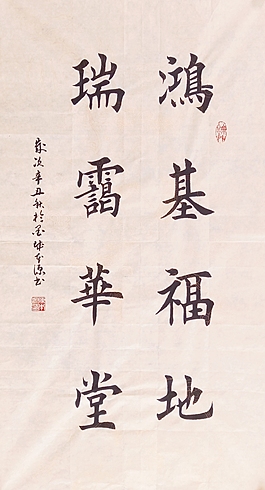 鴻基福地
瑞靄華堂
歲次辛丑秋於